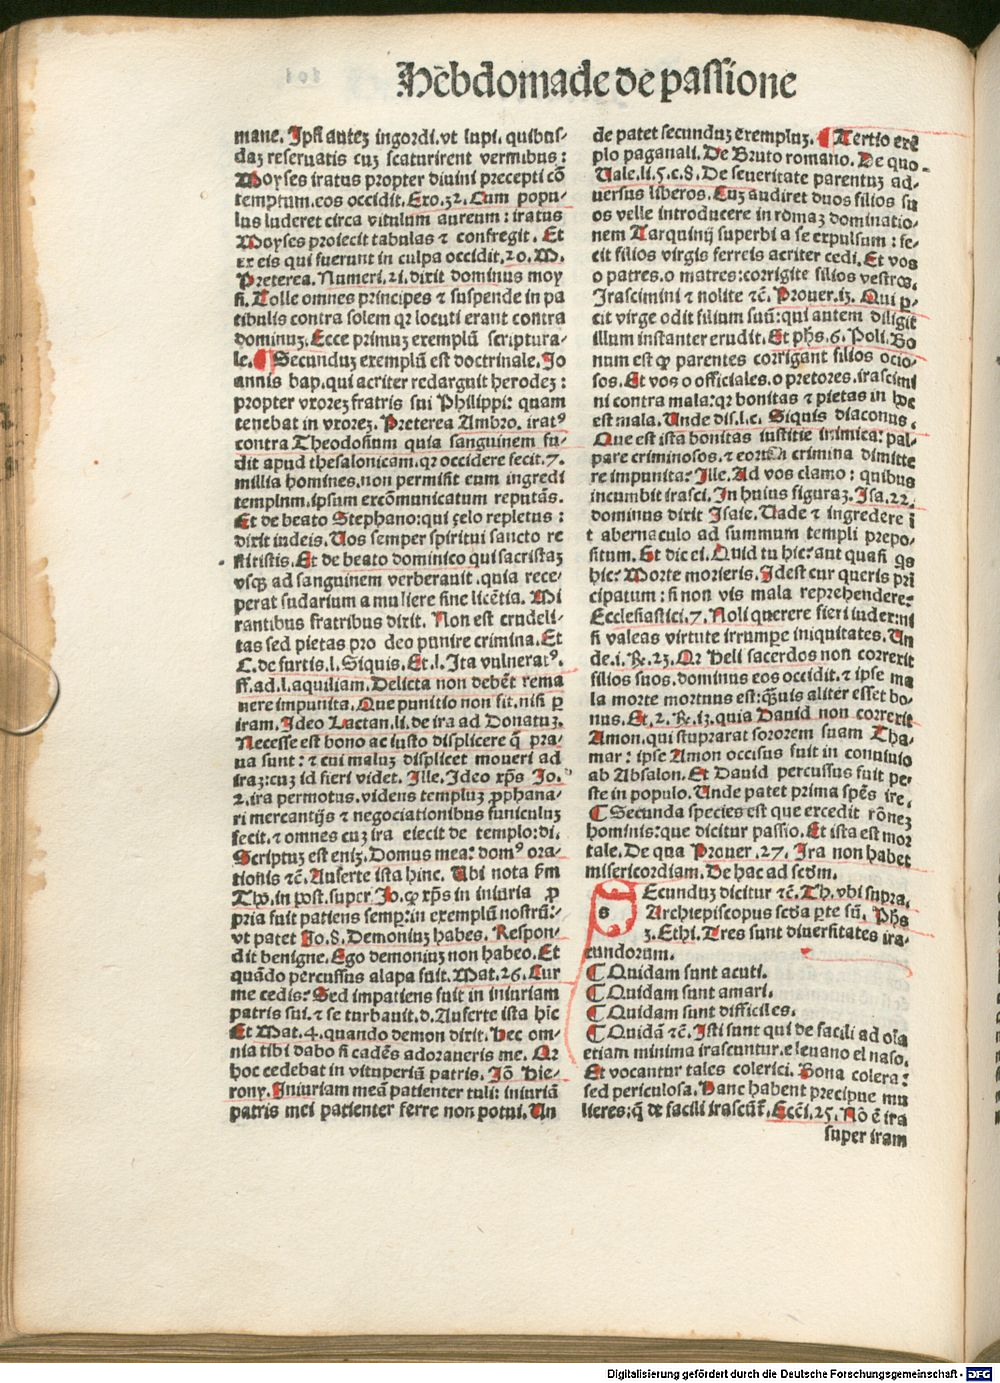 Hēbdomade de passione
mane. Ipsi autez ingordi. vt lupi. quibus-
daz reseruatis cuz scaturirent vermibus:
Moyses iratus propter diuini precepti cō
temptum. eos occidit. Exo. 32. Cum popu-
lus luderet circa vitulum aureum: iratus
Moyses proiecit tabulas ⁊ confregit. Et
ex eis qui fuerunt in culpa occidit. 20. M.
Preterea. Numeri. 21. dixit dominus moy
si. Tolle omnes principes ⁊ suspende in pa
tibulis contra solem qr locuti erant contra
dominuz. Ecce primuz exemplū scriptura-
le. ¶ Secunduz exemplū est doctrinale. Jo
annis bap. qui acriter redarguit herodez:
propter vxorez fratris sui Philippi: quam
tenebat in vxorez. Preterea Ambro. irat⁹
contra Theodosium quia sanguinem fu-
dit apud thesalonicam. qr occidere fecit. 7.
millia homines. non permisit eum ingredi
templum. ipsum excōmunicatum reputās.
Et de beato Stephano: qui çelo repletus:
dixit iudeis. Uos semper spiritui sancto re
stitistis. Et de beato dominico qui sacristaz
vsqꝫ ad sanguinem verberauit. quia rece-
perat sudarium a muliere sine licētia. Mi
rantibus fratribus dixit. Non est crudeli-
tas sed pietas pro deo punire crimina. Et
C. de furtis. l. Siquis. Et. l. Ita vulnerat⁹.
ff. ad. l. aquiliam. Delicta non debēt rema
nere impunita. Que punitio non fit. nisi ꝑ
iram. Ideo Lactan. li. de ira ad Donatuz.
Necesse est bono ac iusto displicere q̄ pra-
ua sunt: ⁊ cui maluz displicet moueri ad
iraz: cuz id fieri videt. Ille. Ideo xp̄s Jo.
2. ira permotus. videns templuz ꝓphana-
ri mercantijs ⁊ negociationibus funiculuz
fecit. ⁊ omnes cuz ira eiecit de templo: di.
Scriptuz est eniz. Domus mea: dom⁹ ora-
tionis ⁊c̄. Auferte ista hinc. Ubi nota ẜm
Tho. in post. super Jo. ꝙ xp̄s in iniuria ꝓ
pria fuit patiens semper: in exemplū nostrū:-
vt patet Jo. 8. Demoniuz habes. Respon-
dit benigne. Ego demoniuz non habeo. Et
quādo percussus alapa fuit. Mat. 26. Cur
me cedis? Sed impatiens fuit in iniuriam
patris sui. ⁊ se turbauit. d. Auferte ista hīc
Et Mat. 4. quando demon dixit. Hec om-
nia tibi dabo si cadēs adoraueris me. Qr
hoc cedebat in vituperiū patris. Jō. Hie-
rony. Iniuriam meā patienter tuli: iniuriā
patris mei patienter ferre non potui. Un
de patet secunduz exempluz. ¶ Tertio exē
plo paganali. De Bruto romano. De quo-
Uale. li. 5. c. 8. De seueritate parentuz ad-
uersus liberos. Cuz audiret duos filios su
os velle introducere in romaz dominatio-
nem Tarquinij superbi a se expulsum: fe-
cit filios virgis ferreis acriter cedi. Et vos
o patres. o matres: corrigite filios vestros.
Irascimini ⁊ nolite ⁊c̄. Prouer. 13. Qui ꝑ-
cit virge odit filium suū: qui autem diligit
illum instanter erudit. Et phs. 6. Poli. Bo
num est ꝙ parentes corrigant filios ocio-
sos. Et vos o officiales. o pretores. irascimi
ni contra mala: qr bonitas ⁊ pietas in hoc
est mala. Unde dis. l. c. Siquis diaconus.
Que est ista bonitas iustitie inimica: pal-
pare criminosos. ⁊ eorum crimina dimitte
re impunita? Ille. Ad vos clamo: quibus
incumbit irasci. In huius figuraz. Isa. 22.
dominus dixit Isaie. Uade ⁊ ingredere ī
t abernaculo ad summum templi prepo-
situm. Et dic ei. Quid tu hic: aut quasi qs
hic? Morte morieris. Idest cur queris prī
cipatum: si non vis mala reprehendere?
Ecclesiastici. 7. Noli querere fieri iudex: ni
si valeas virtute irrumpe iniquitates. Un
de. i. Re. 23. Qr Heli sacerdos non correxit
filios suos. dominus eos occidit. ⁊ ipse ma
la morte mortuus est: qꝫuis aliter esset bo-
nus. Et. 2. Re. 13. quia Dauid non correxit
Amon. qui stuprarat sororem suam Tha-
mar: ipse Amon occisus fuit in conuiuio
ab Absalon. Et Dauid percussus fuit pe-
ste in populo. Unde patet prima spēs ire.
¶ Secunda species est que excedit rōnez
hominis: que dicitur passio. Et ista est mor
tale. De qua Prouer. 27. Ira non habet
misericordiam. De hac ad scdm.
s Ecunduz dicitur ⁊c̄. Th. vbi supra.
Archiepiscopus scda parte sū. Phs
3. Ethi. Tres sunt diuersitates ira-
cundorum.
¶ Quidam sunt acuti.
¶ Quidam sunt amari.
¶ Quidam sunt difficiles.
¶ Quidā ⁊c̄. Isti sunt qui de facili ad oīa
etiam minima irascuntur. e leuano el naso.
Et vocantur tales colerici. Bona colera:
sed periculosa. Hanc habent precipue mu
lieres: q̄ de facili irascūt̄. Eccī. 25. Nō ē ira
super iram
Digitalisierung gefördert durch die Deutsche Forschungsgemeinschaft - DFG